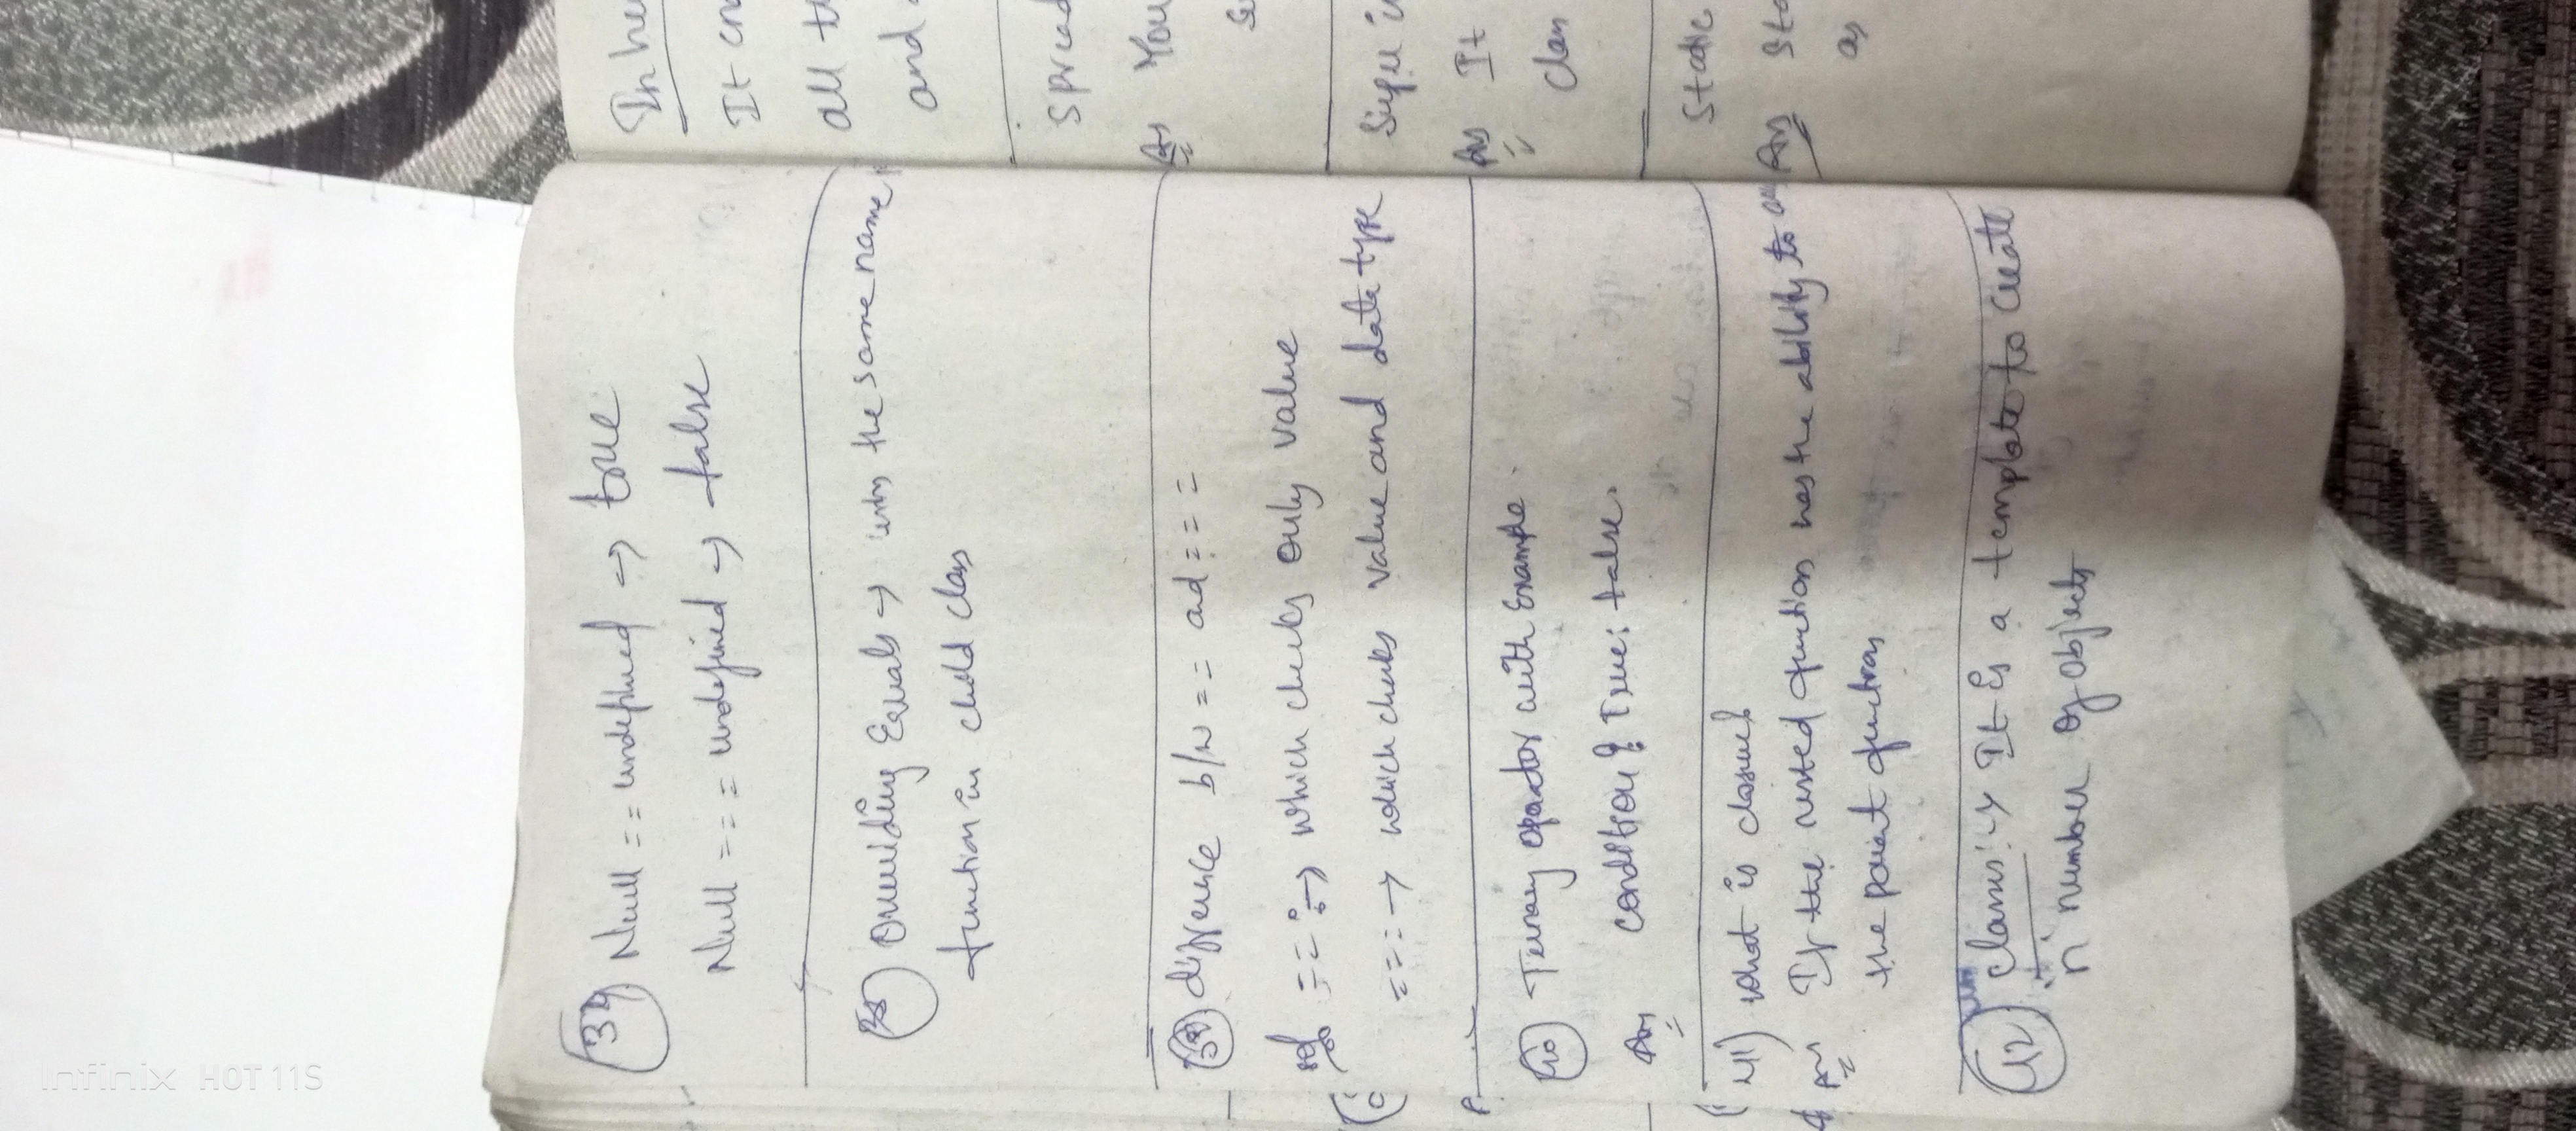 34 Null == undefined → true
Null === undefined → false
Overriding Equals → with the same name
function in child class
39 difference b/w == ad ===
sol == :→ which checks only value
=== → which checks value and data type
40 Ternary operator with Example.
Ans condition ? True : false.
41) what is closure?
Ans If the nested function has the ability to
the parent function
42) class :→ It is a template to create
'n' number of objects
Inhe
It
all t
and
Spread
Ans You
Single i
Ans It
class
Static
Ans Sta
as
Infinix HOT 11S